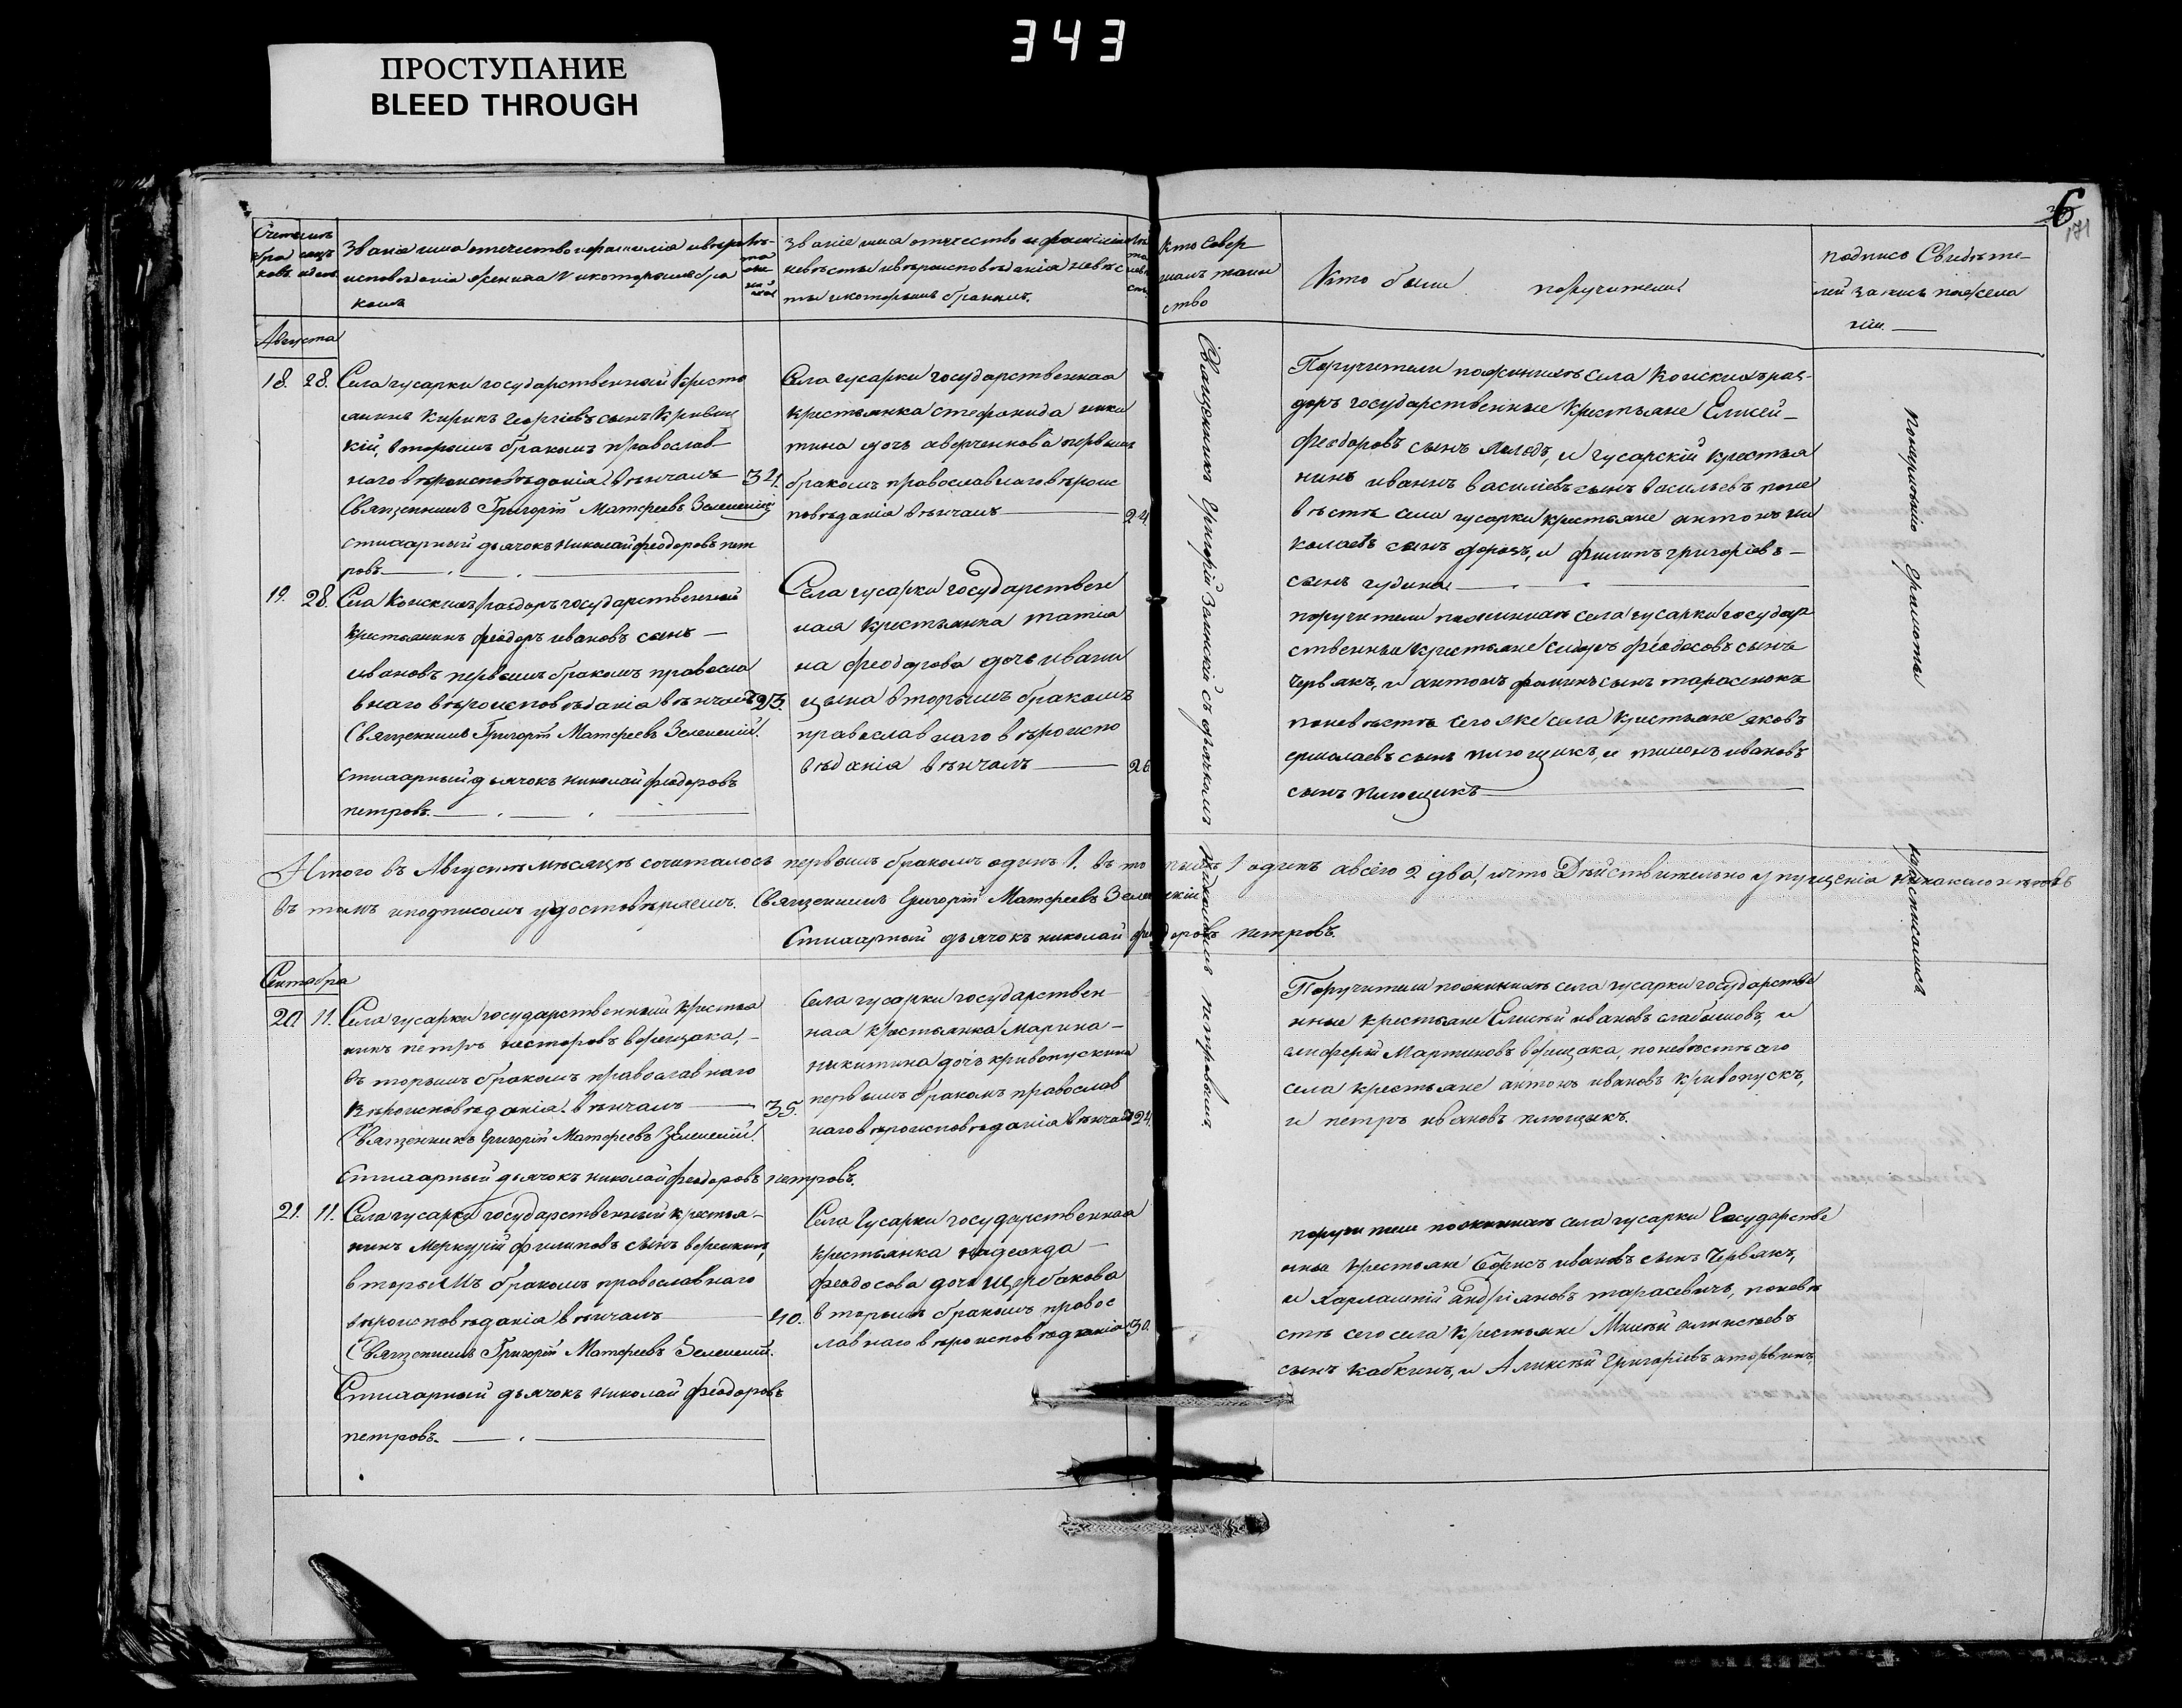 343
ПРОСТУПАНИЕ
BLEED THROUGH
6
171
Счетъ
бра
ковъ
Званіе имя отечество и фамилія
исповеданія жениха и которымъ бра
комъ
Званіе имя отчество и фамилія
невесты и вѣроисповѣданія невѣс
ты и которымъ бракомъ.
Кто Совер
шалъ таин
ство
Кто были поручители
подпись Свидѣте-
лей запись по жела
нію.
Августа
18. 28. Села гусарки государственный кресть
янинъ Кирикъ Георгіевъ сынъ
кій, вторымъ бракомъ православ
наго вѣроисповѣданія вѣнчанъ 34.
Священникъ Григорій Матфеевъ Зеленскій
стихарный дьячокъ Николай феодоровъ пет
ровъ.
Села гусарки государственная
крестьянка стефанида ники
тина дочь аверченкова первымъ
бракомъ православнаго вѣроис
повѣданія вѣнчанъ 24
Поручители по женихѣ села Конскихъ раз-
доръ государственные крестьяне Елисей
феодоровъ сынъ и гусарскій крестья
нинъ иванъ василіевъ сынъ васильевъ поне
вѣстѣ села гусарки крестьяне антонъ ни
колаевъ сынъ и филипъ григоріевъ
сынъ гудина
19. 28. Села Конскихъ раздоръ государственный
крестьянинъ феодоръ ивановъ сынъ
ивановъ первымъ бракомъ правосла
внаго вѣроисповѣданія вѣнчанъ 23
Священникъ Григорій Матфеевъ Зеленскій.
стихарный дьячокъ николай феодоровъ
петровъ.
Села гусарки государствен
ная крестьянка татіа
на феодорова дочь ивани
цына вторымъ бракомъ
православнаго вѣроиспо
вѣданія вѣнчанъ 26
поручители по женихѣ села гусарки государ
ственные крестьяне сидоръ феодосовъ сынъ
Червякъ, и антонъ фоминъ сынъ тарасенокъ
поневѣстѣ сего же села крестьяне яковъ
ермолаевъ сынъ плющикъ, и ивановъ
сынъ плющикъ
Итого въ Августѣ мѣсяцѣ сочиталось первымъ бракомъ одинъ 1. въ 1 одинъ а всего 2 два, и что Дѣйствительно упущенія никакого
въ томъ и подписомъ удостовѣряемъ. Священникъ Григорій Матфеевъ Зеленскій
Стихарный дьячокъ николай феодоровъ петровъ.
Священникъ Григорій Зеленскій съ дьячкомъ николаемъ петровымъ.
Понеумѣнію Грамоты неподписались
Сентября
20. 11. Села гусарки государственный крестья
нинъ петръ несторовъ верещака,
вторымъ бракомъ православнаго
вѣроисповѣданія вѣнчанъ 35.
Священникъ Григорій Матфеевъ Зеленскій.
Стихарный дьячокъ николай феодоровъ петровъ.
Села гусарки государствен
ная крестьянка Марина
никитина дочь кривопускина
первымъ бракомъ православ
наго вѣроисповѣданія вѣнчанъ 24
Поручители поженихѣ села гусарки государстве
нные крестьяне Елисѣй ивановъ и
елиферій Мартиновъ верещака, поневѣстѣ сего
села крестьяне антонъ ивановъ кривопускъ,
и петръ ивановъ плющикъ.
21. 11. Села гусарки государственный крестья-
нинъ Меркурій филиповъ сынъ
вторымъ бракомъ православнаго
вѣроисповѣданія вѣнчанъ 40.
Священникъ Григорій Матфеевъ Зеленскій.
Стихарный дьячокъ николай феодоровъ
петровъ.
Села Гусарки государственная
крестьянка надежда
феодосова дочь щербакова
вторымъ бракомъ правос
лавнаго вѣроисповѣданія 30.
поручители поженихѣ села гусарки Государстве
нные крестьяне Борисъ ивановъ сынъ Червякъ,
и харлампій андріяновъ тарасевичъ, поневѣ
стѣ сего села крестьяне
сынъ кабкинъ, и Аликсѣй Григоріевъ